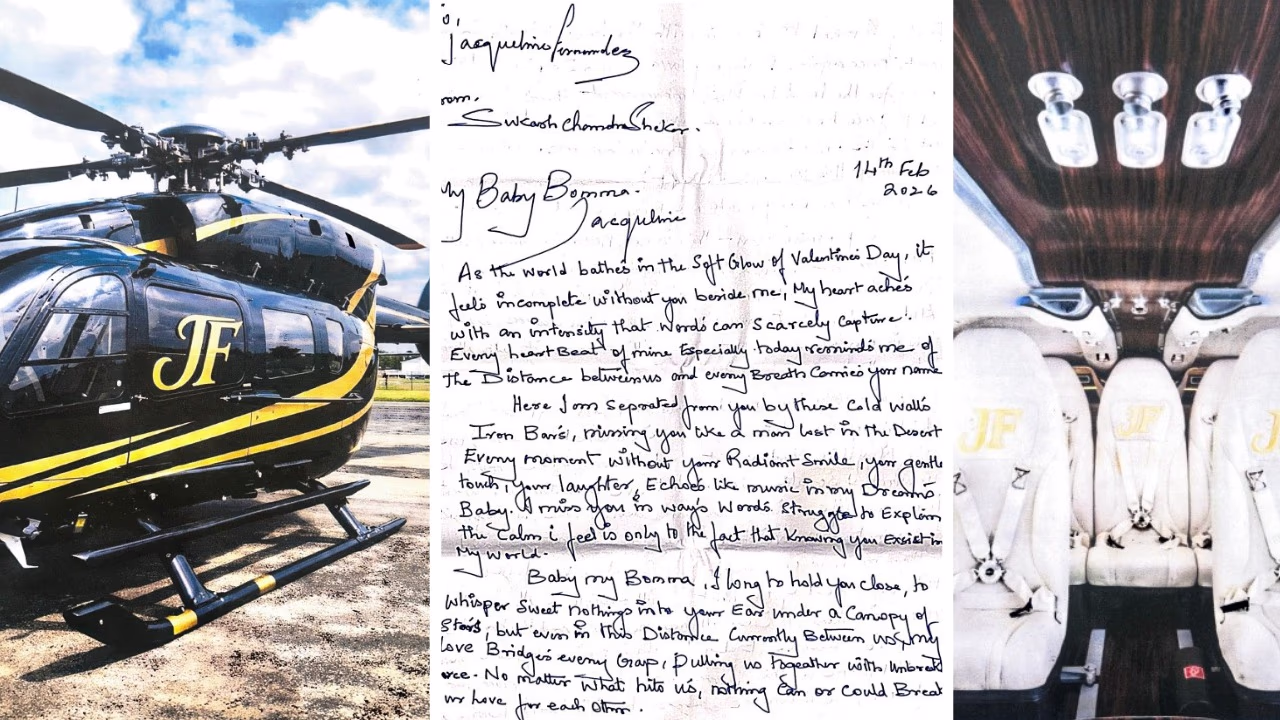 JF
To,
Jacqueline Fernandez
rom,
Sukash Chandra Shekar.
14th Feb
2026
My Baby Bomma.
Jacqueline
As the world bathes in the Soft Glow of Valentine's Day, it
feels incomplete without you beside me, My heart aches
with an intensity that Words can Scarcely Capture.
Every heart Beat of mine Especially today reminds me of
the Distance between us and every Breath Carries your name
Here I am Seprated from you by these Cold Walls
Iron Bars, missing you like a man lost in the Desert
Every moment without your Radiant Smile, your gentle
touch, your laughter, Echoes like music in my Dreams
Baby. I miss you in ways Words. Struggle to Explain
the Calm i feel is only to the fact that Knowing you Exsist in
My World.
Baby my Bomma, I long to hold you close, to
Whisper Sweet nothings into your Ear under a Canopy of
Stars, but even in this Distance Currently Between us, my
love Bridges every Gap, Pulling us together with Unbreak
orce. No matter What hits us, nothing Can or Could Break
ur Love for each other.
JF
JF
JF